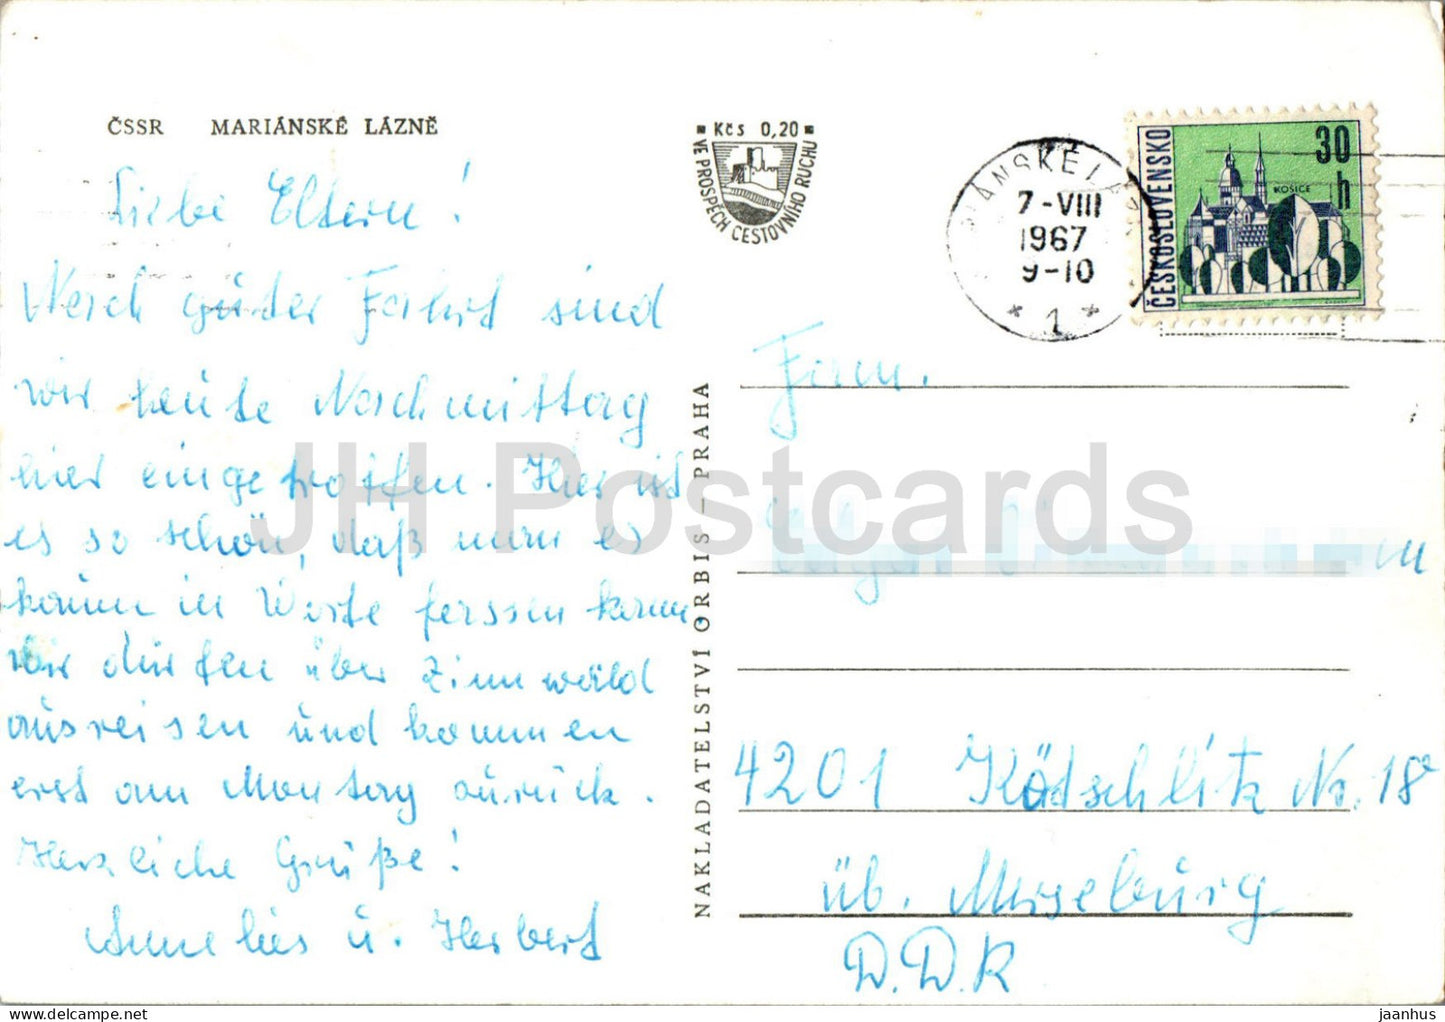 ČSSR MARIÁNSKÉ LÁZNĚ
Liebe Eltern!
Nach guter Fahrt sind
wir heute Nachmittag
hier eingetroffen. Hier ist
es so schön, daß man es
kaum in Worte fassen kann.
Wir dürfen über Zinnwald
ausreisen und kommen
erst am Montag zurück.
Herzliche Grüße!
Annelies u. Herbert
Kčs 0,20
VE PROSPĚCH CESTOVNÍHO RUCHU
NAKLADATELSTVÍ ORBIS — PRAHA
7-VIII
1967
9-10
* 1 *
ČESKOSLOVENSKO
30 h
KOŠICE
Fam.
4201 Kötschlitz Nr. 18a
üb. Merseburg
D.D.R
JH Postcards
jaanhus — www.delcampe.net